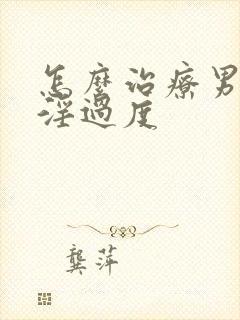 怎麼治療男
淫過度
龔萍